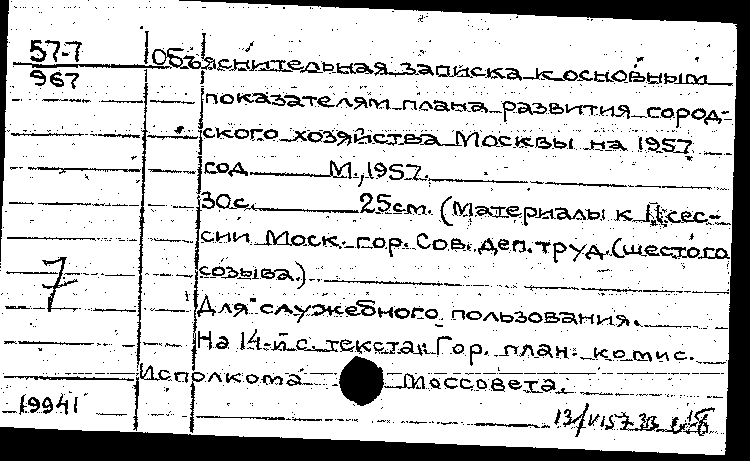 57-7
967
Объяснительная записка к основным
показателям плана развития город-
ского хозяйства Москвы на 1957
год М., 1957.
30с. 25см. (Материалы к II сес-
сии Моск. гор. Сов. деп. труд. (шестого
созыва.)
7
Для служебного пользования.
На 14-й с. текста: Гор. план. комис.
Исполкома Моссовета.
19941
13/VI57